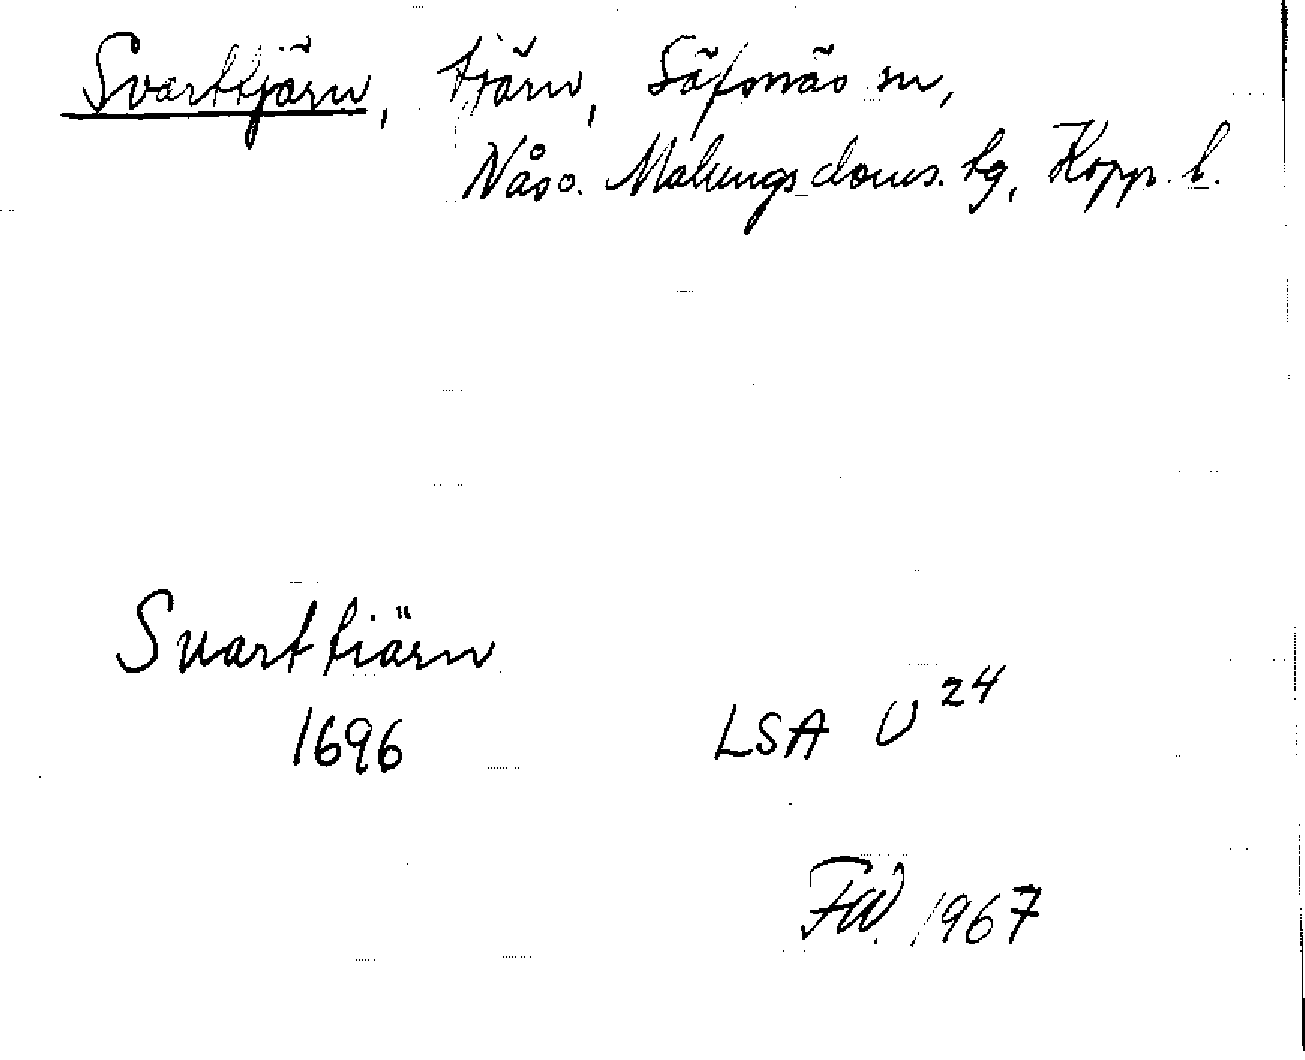 Svarttjärn, tjärn, Säfsnäs sn,
Nås o. Malungs doms. hg, Kopp. l.
Suarttiärn
1696
LSA U 24
FW. 1967